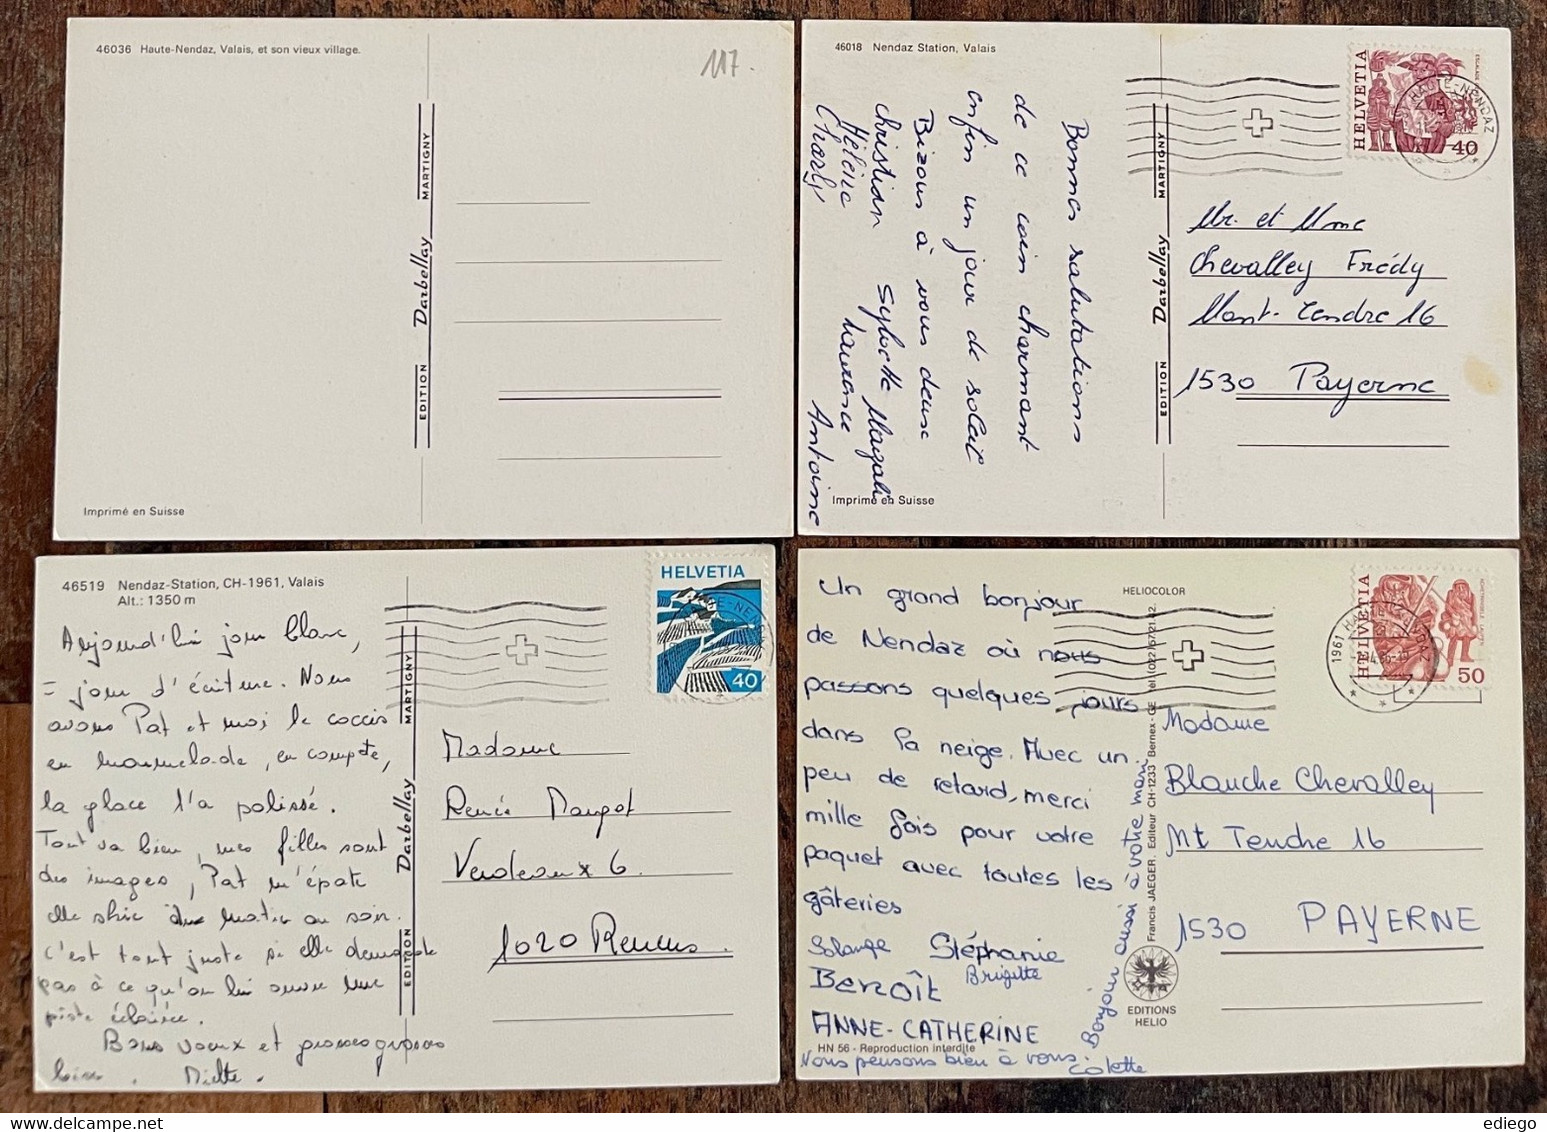 46036 Haute-Nendaz, Valais, et son vieux village.
117.
EDITION Darbellay MARTIGNY
Imprimé en Suisse
46018 Nendaz Station, Valais
Bonnes salutations
de ce coin charmant
enfin un jour de soleil
Bizous à vous deux
Christian Sylvette Magali
Hélène Laurance
Charly Antoine
EDITION Darbellay MARTIGNY
HELVETIA
40
HAUTE-NENDAZ
Mr. et Mme
Chevalley Frédy
Mont-Tendre 16
1530 Payerne
Imprimé en Suisse
46519 Nendaz-Station, CH-1961, Valais
Alt.: 1350 m
Aujourd'hui jour blanc,
= jour d'écriture. Nous
avons Pat et moi le coccis
en marmelade, en compote,
la glace l'a polissé.
Tout va bien, mes filles sont
des images, Pat m'épate
elle skie du matin au soir.
c'est tout juste si elle demande
pas à ce qu'on lui ouvre une
piste éclairée.
Bons voeux et grosses
bises.
EDITION Darbellay MARTIGNY
HELVETIA
40
Madame
Renée Mauget
Verdeaux 6
1020 Renens.
Un grand bonjour
de Nendaz où nous
passons quelques jours
dans la neige. Avec un
peu de retard, merci
mille fois pour votre
paquet avec toutes les
gâteries
Solange Stéphanie
Brigitte
Benoît
ANNE-CATHERINE
HN 56 - Reproduction interdite
Nous pensons bien à vous.
Colette
Bonjour aussi à votre mari
HELIOCOLOR
Francis JAEGER. Editeur CH-1233 Bernex-GE Tél. (022) 57 21 42.
EDITIONS
HELIO
1961 HAUTE-NENDAZ
HELVETIA
50
Madame
Blanche Chevalley
Mt Tendre 16
1530 PAYERNE
ediego